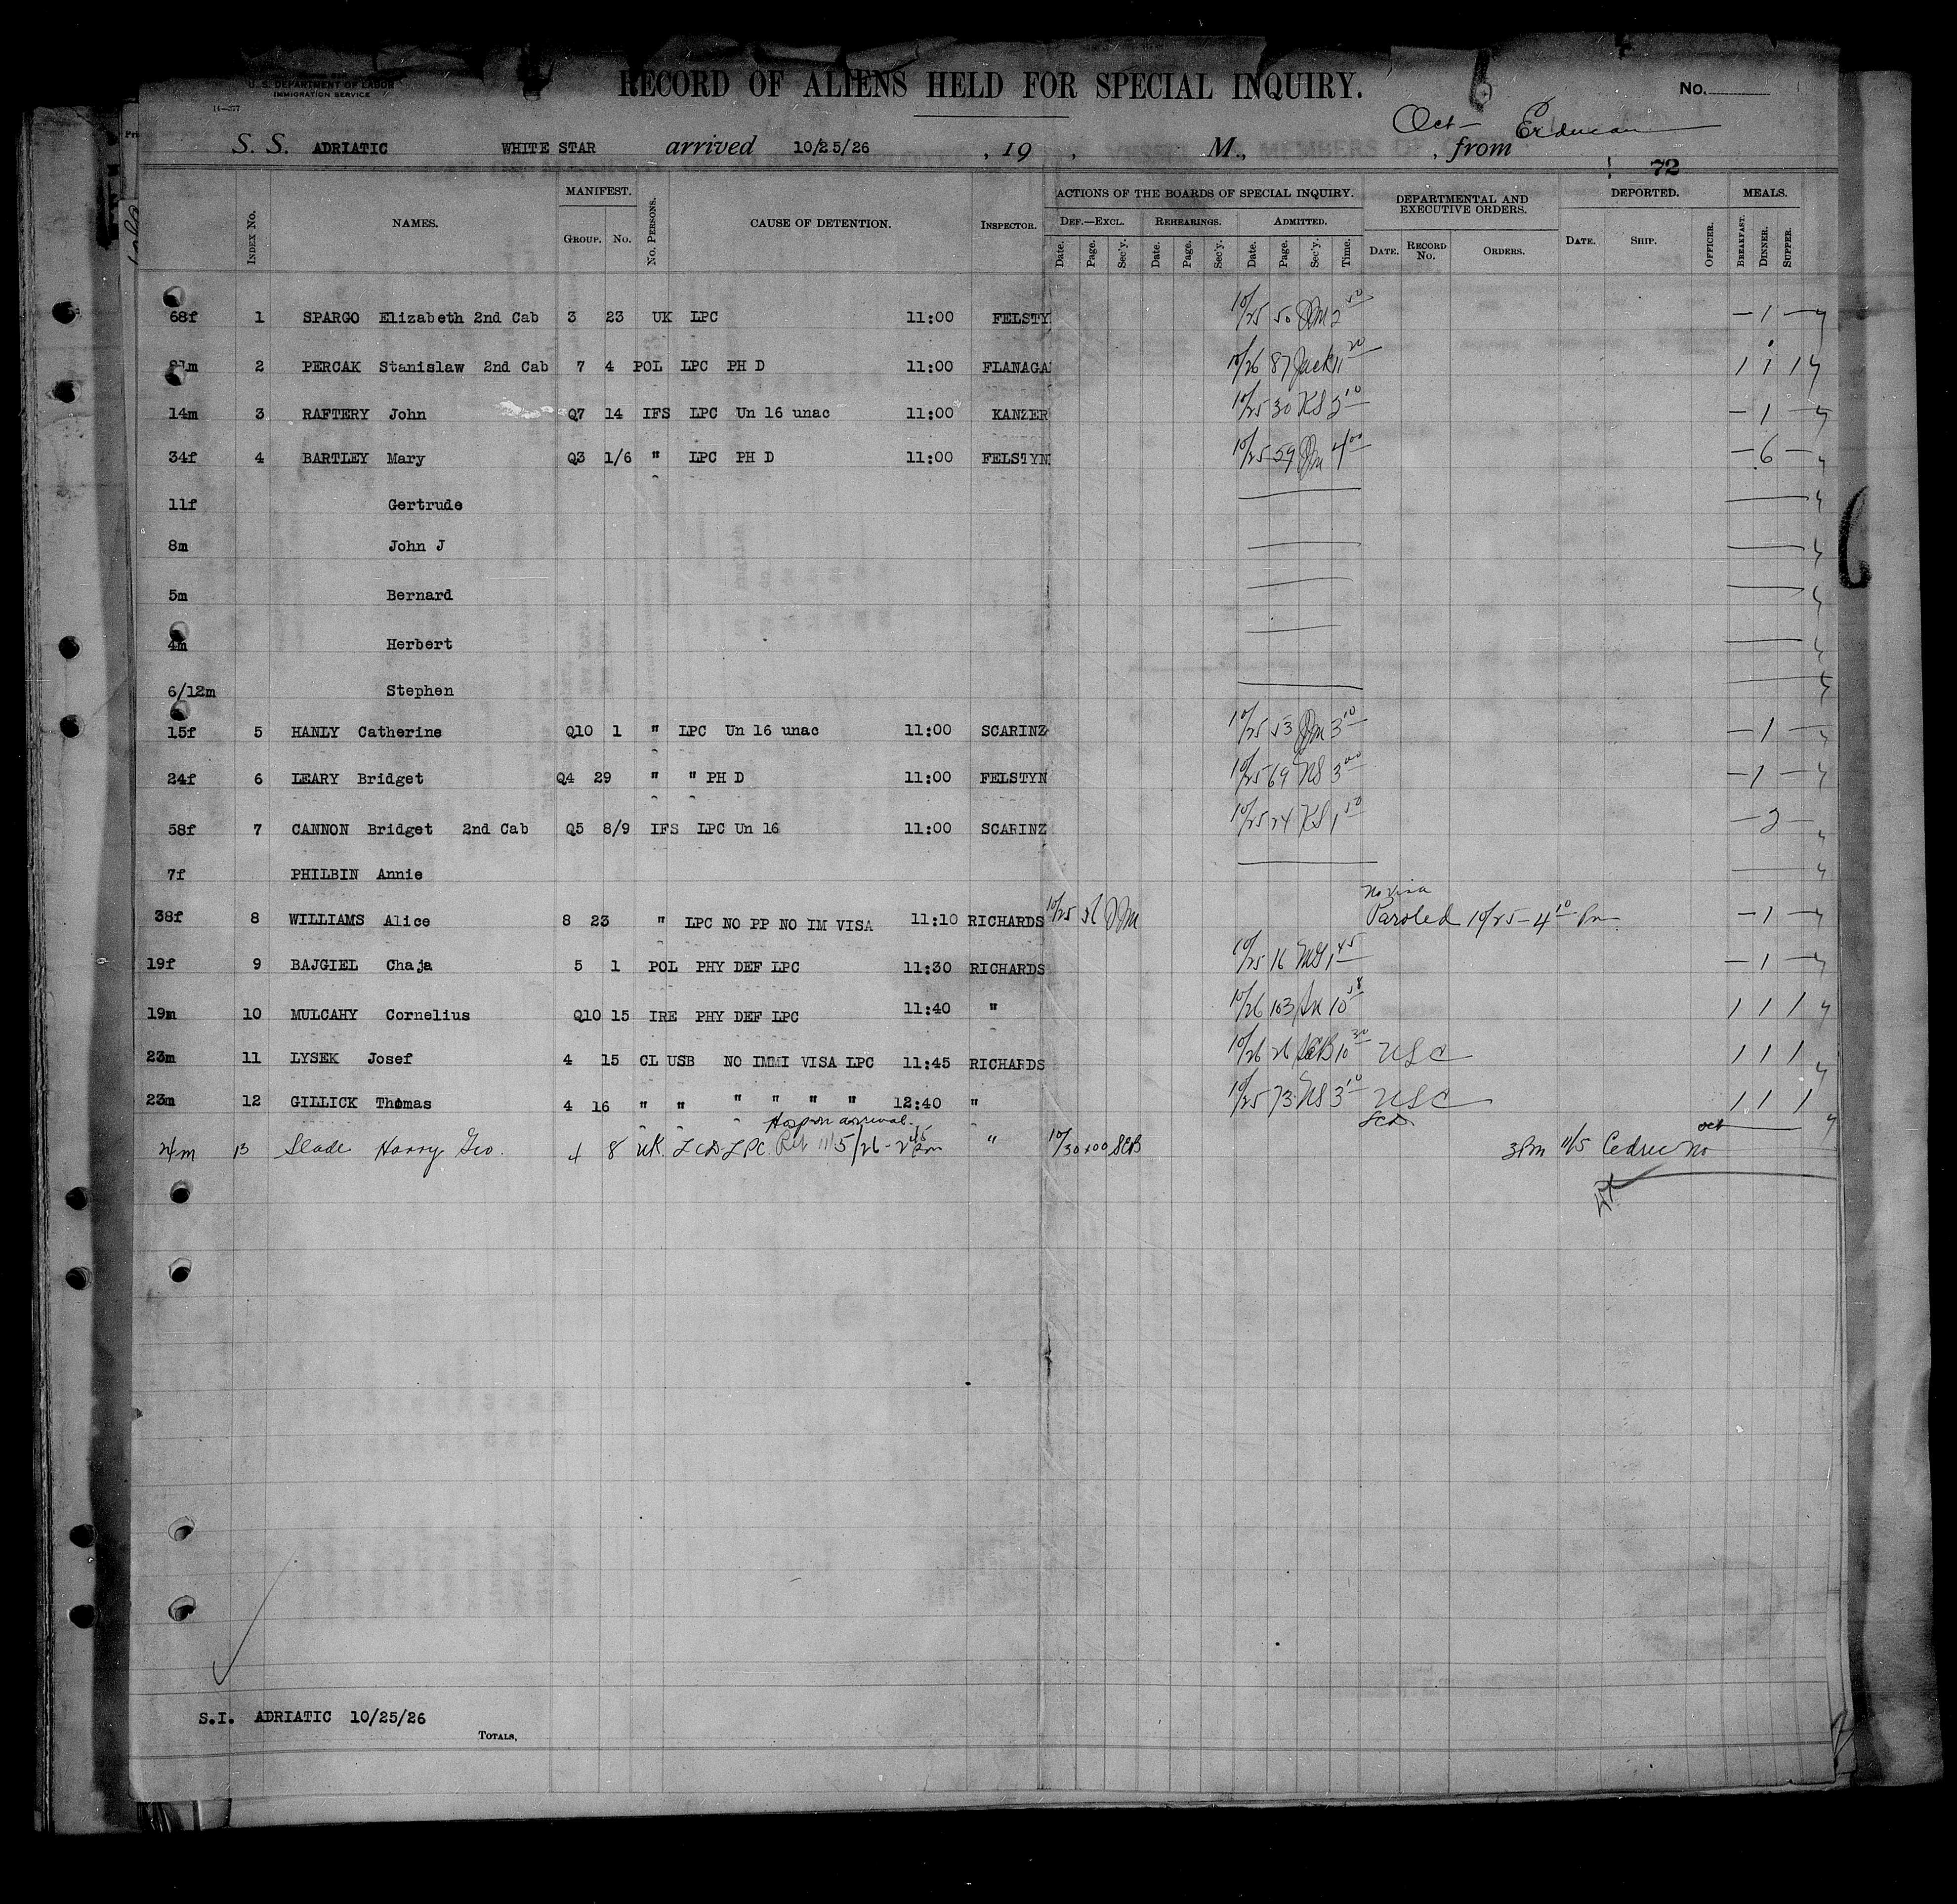 U. S. DEPARTMENT OF LABOR
IMMIGRATION SERVICE
14—377
RECORD OF ALIENS HELD FOR SPECIAL INQUIRY.
6
No.
Oct
S. S. ADRIATIC WHITE STAR arrived 10/25/26 , 19 , M., , from
72
INDEX No. NAMES. MANIFEST. GROUP. No. No. PERSONS. CAUSE OF DETENTION. INSPECTOR. ACTIONS OF THE BOARDS OF SPECIAL INQUIRY. DEPARTMENTAL AND EXECUTIVE ORDERS. DEPORTED. MEALS.
DEF.—EXCL. REHEARINGS. ADMITTED.
Date. Page. Sec'y. Date. Page. Sec'y. Date. Page. Sec'y. Time. DATE. RECORD No. ORDERS. DATE. SHIP. OFFICER. BREAKFAST. DINNER. SUPPER.
68f 1 SPARGO Elizabeth 2nd Cab 3 23 UK LPC 11:00 FELSTY 10/25 50 2 50 — 1 —
2 PERCAK Stanislaw 2nd Cab 7 4 POL LPC PH D 11:00 FLANAGA 10/26 87 Jack 11 20 1 1 1
14m 3 RAFTERY John Q7 14 IFS LPC Un 16 unac 11:00 KANZER 10/25 30 KS 2 10 — 1 —
34f 4 BARTLEY Mary Q3 1/6 " LPC PH D 11:00 FELSTYN 10/25 59 4 00 — 6 —
11f Gertrude
8m John J
5m Bernard
4m Herbert
6/12m Stephen
15f 5 HANLY Catherine Q10 1 " LPC Un 16 unac 11:00 SCARINZ 10/25 53 3 10 — 1 —
24f 6 LEARY Bridget Q4 29 " " PH D 11:00 FELSTYN 10/25 69 NS 3 00 — 1 —
58f 7 CANNON Bridget 2nd Cab Q5 8/9 IFS LPC Un 16 11:00 SCARINZ 10/25 24 KS 1 50 — 2 —
7f PHILBIN Annie
No visa
38f 8 WILLIAMS Alice 8 23 " LPC NO PP NO IM VISA 11:10 RICHARDS 10/25 Paroled 10/25 — 4 10 Pm — 1 —
19f 9 BAJGIEL Chaja 5 1 POL PHY DEF LPC 11:30 RICHARDS 10/25 16 1 45 — 1 —
19m 10 MULCAHY Cornelius Q10 15 IRE PHY DEF LPC 11:40 " 10/26 103 10 1 1 1
23m 11 LYSEK Josef 4 15 CL USB NO IMMI VISA LPC 11:45 RICHARDS 10/26 26 SCB 10 30 USC 1 1 1
23m 12 GILLICK Thomas 4 16 " " " " " " 12:40 " 10/25 73 NS 3 10 USC 1 1 1
Hosp on arrival
13 Slade Harry Geo. 4 8 UK. LCD LPC. 11/5/26 - 2 45 pm " 10/30 SCB 3Pm 11/5 Cedric
S.I. ADRIATIC 10/25/26
TOTALS,